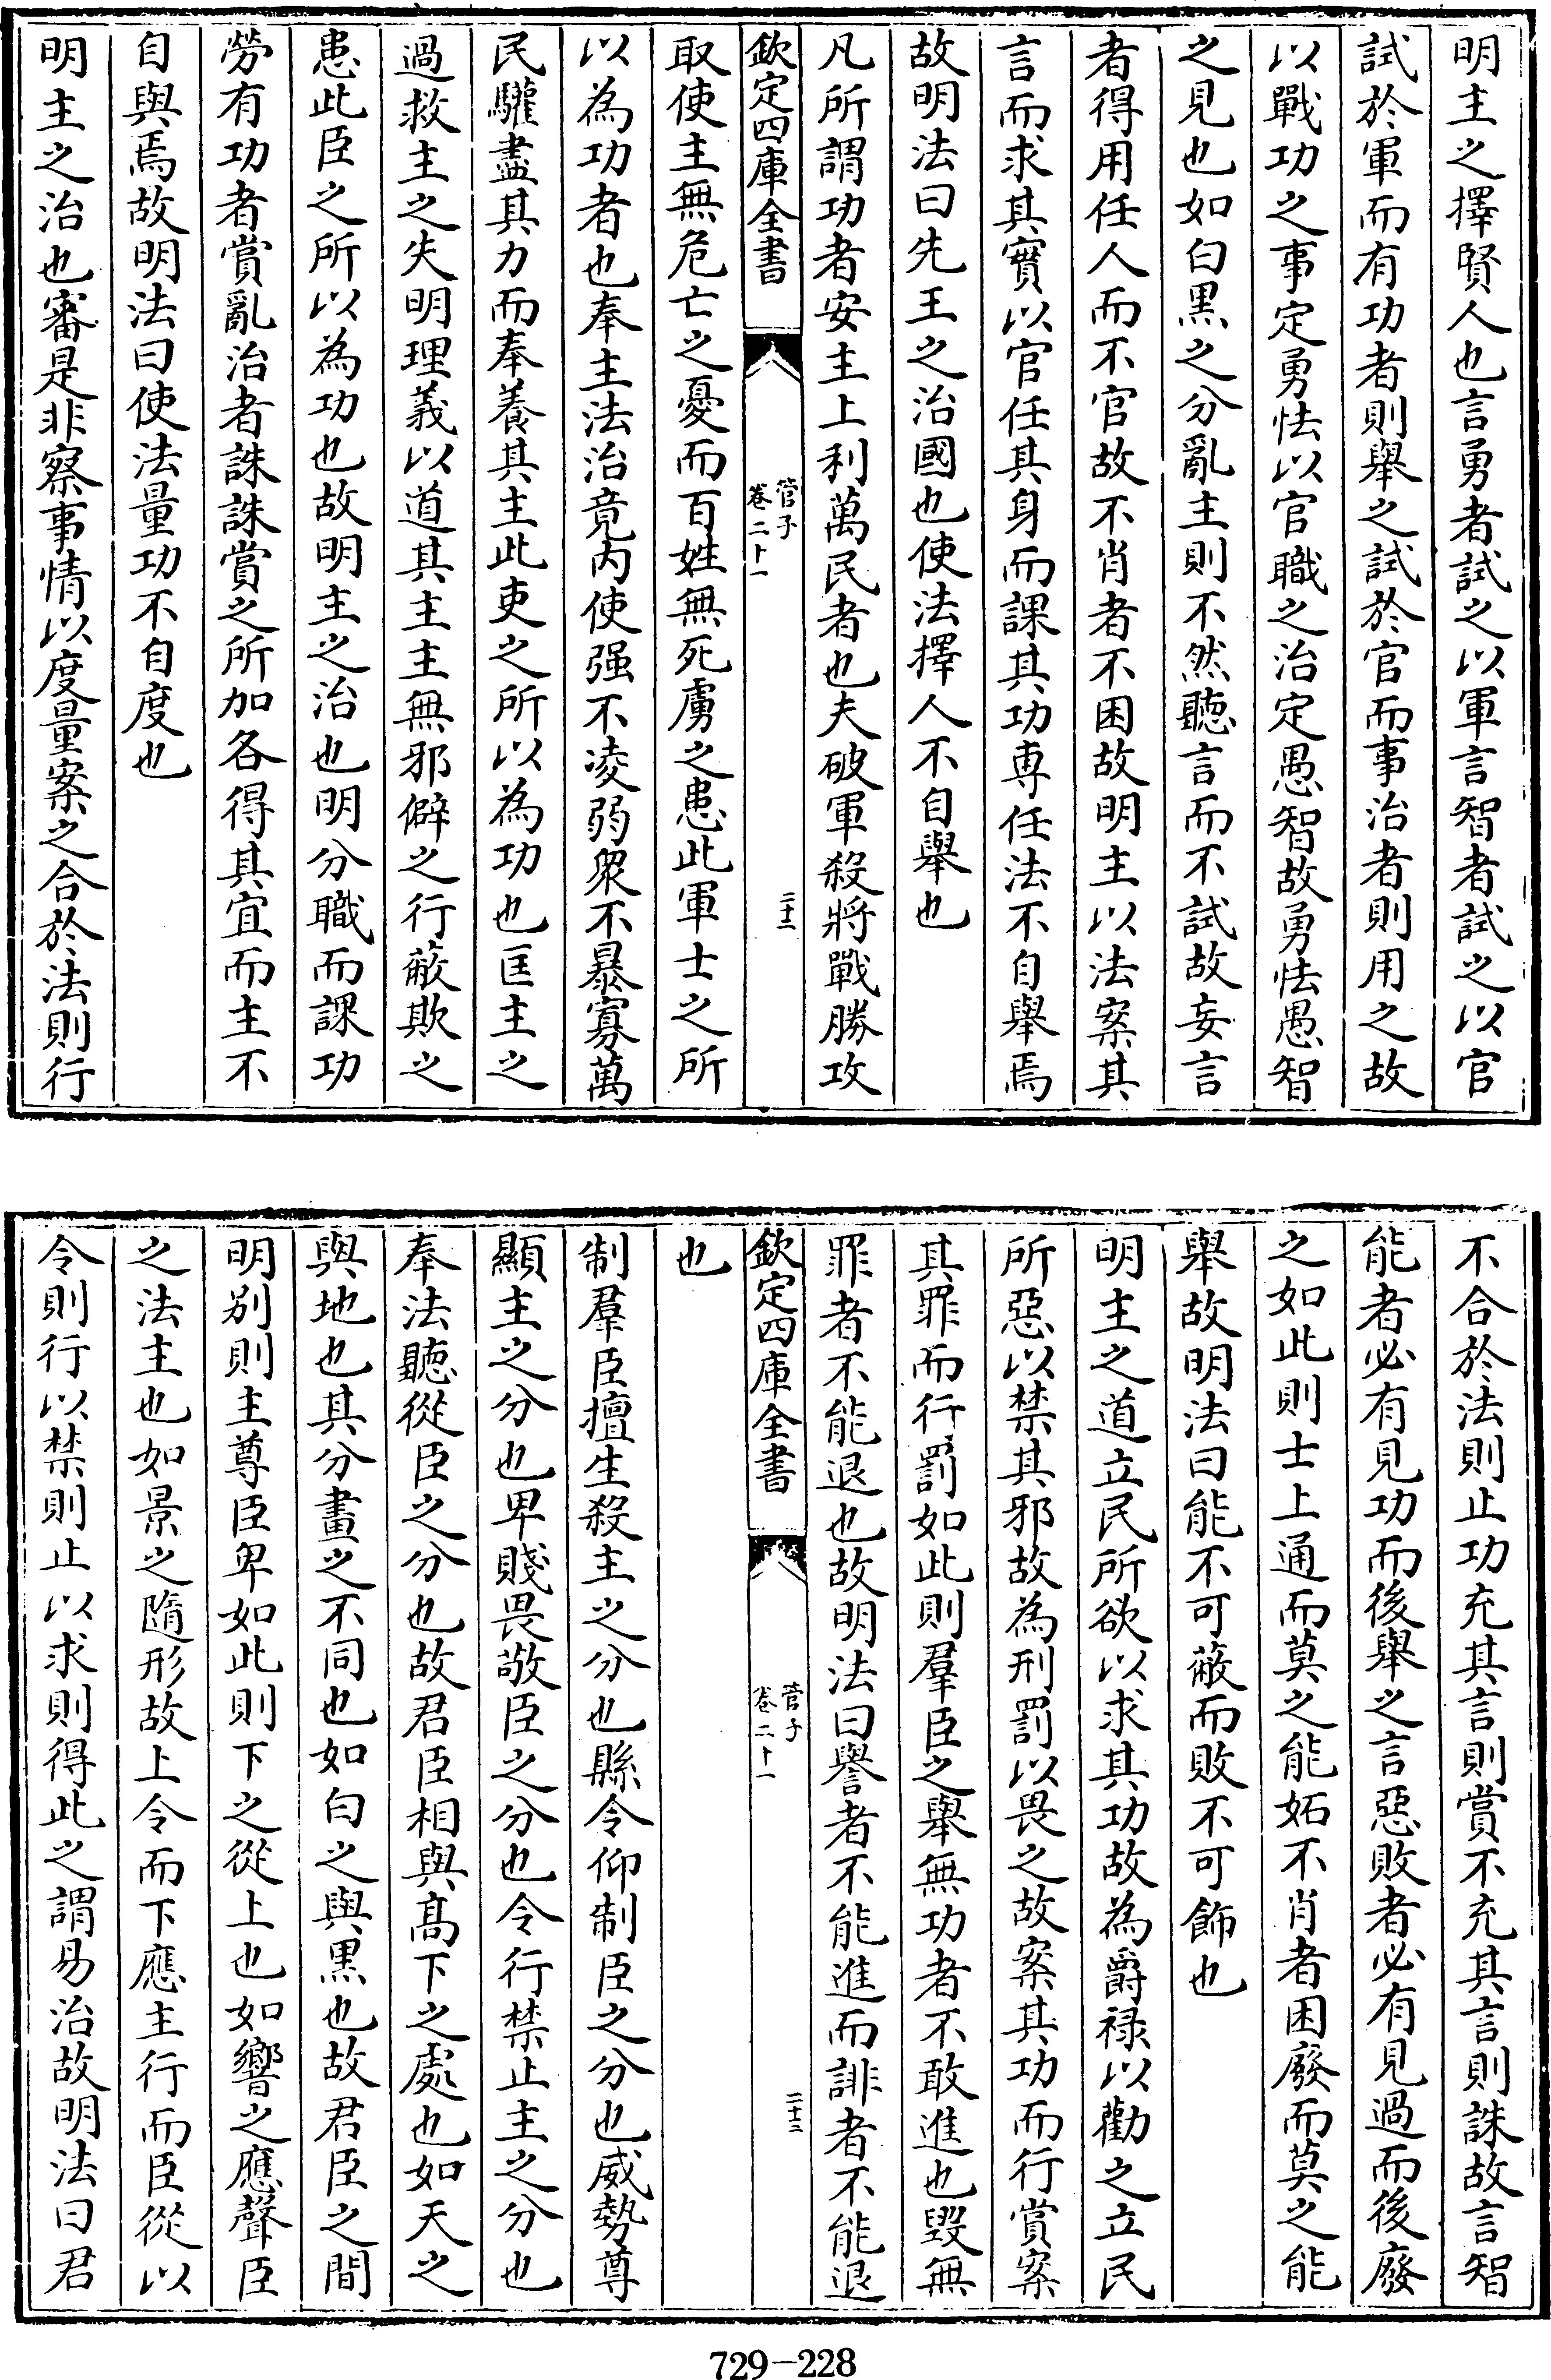 明主之擇賢人也言勇者試之以軍言智者試之以官
試於軍而有功者則舉之試於官而事治者則用之故
以戰功之事定勇怯以官職之治定愚智故勇怯愚智
之見也如白黑之分亂主則不然聽言而不試故妄言
者得用任人而不官故不肖者不困故明主以法案其
言而求其實以官任其身而課其功専任法不自舉焉
故明法曰先王之治國也使法擇人不自舉也
凡所謂功者安主上利萬民者也夫破軍殺將戰勝攻
欽定四庫全書
管子
卷二十一
二十二
取使主無危亡之憂而百姓無死虜之患此軍士之所
以為功者也奉主法治竟内使强不凌弱衆不暴寡萬
民驩盡其力而奉養其主此吏之所以為功也匡主之
過救主之失明理義以道其主主無邪僻之行蔽欺之
患此臣之所以為功也故明主之治也明分職而課功
勞有功者賞亂治者誅誅賞之所加各得其宜而主不
自與焉故明法曰使法量功不自度也
明主之治也審是非察事情以度量案之合於法則行
不合於法則止功充其言則賞不充其言則誅故言智
能者必有見功而後舉之言惡敗者必有見過而後廢
之如此則士上通而莫之能妬不肖者困廢而莫之能
舉故明法曰能不可蔽而敗不可飾也
明主之道立民所欲以求其功故為爵禄以勸之立民
所惡以禁其邪故為刑罰以畏之故案其功而行賞案
其罪而行罰如此則羣臣之舉無功者不敢進也毀無
罪者不能退也故明法曰譽者不能進而誹者不能退
欽定四庫全書
管子
卷二十一
二十三
也
制羣臣擅生殺主之分也縣令仰制臣之分也威勢尊
顯主之分也卑賤畏敬臣之分也令行禁止主之分也
奉法聽從臣之分也故君臣相與髙下之處也如天之
與地也其分畫之不同也如白之與黑也故君臣之間
明别則主尊臣卑如此則下之從上也如響之應聲臣
之法主也如景之隨形故上令而下應主行而臣從以
令則行以禁則止以求則得此之謂易治故明法曰君
729-228